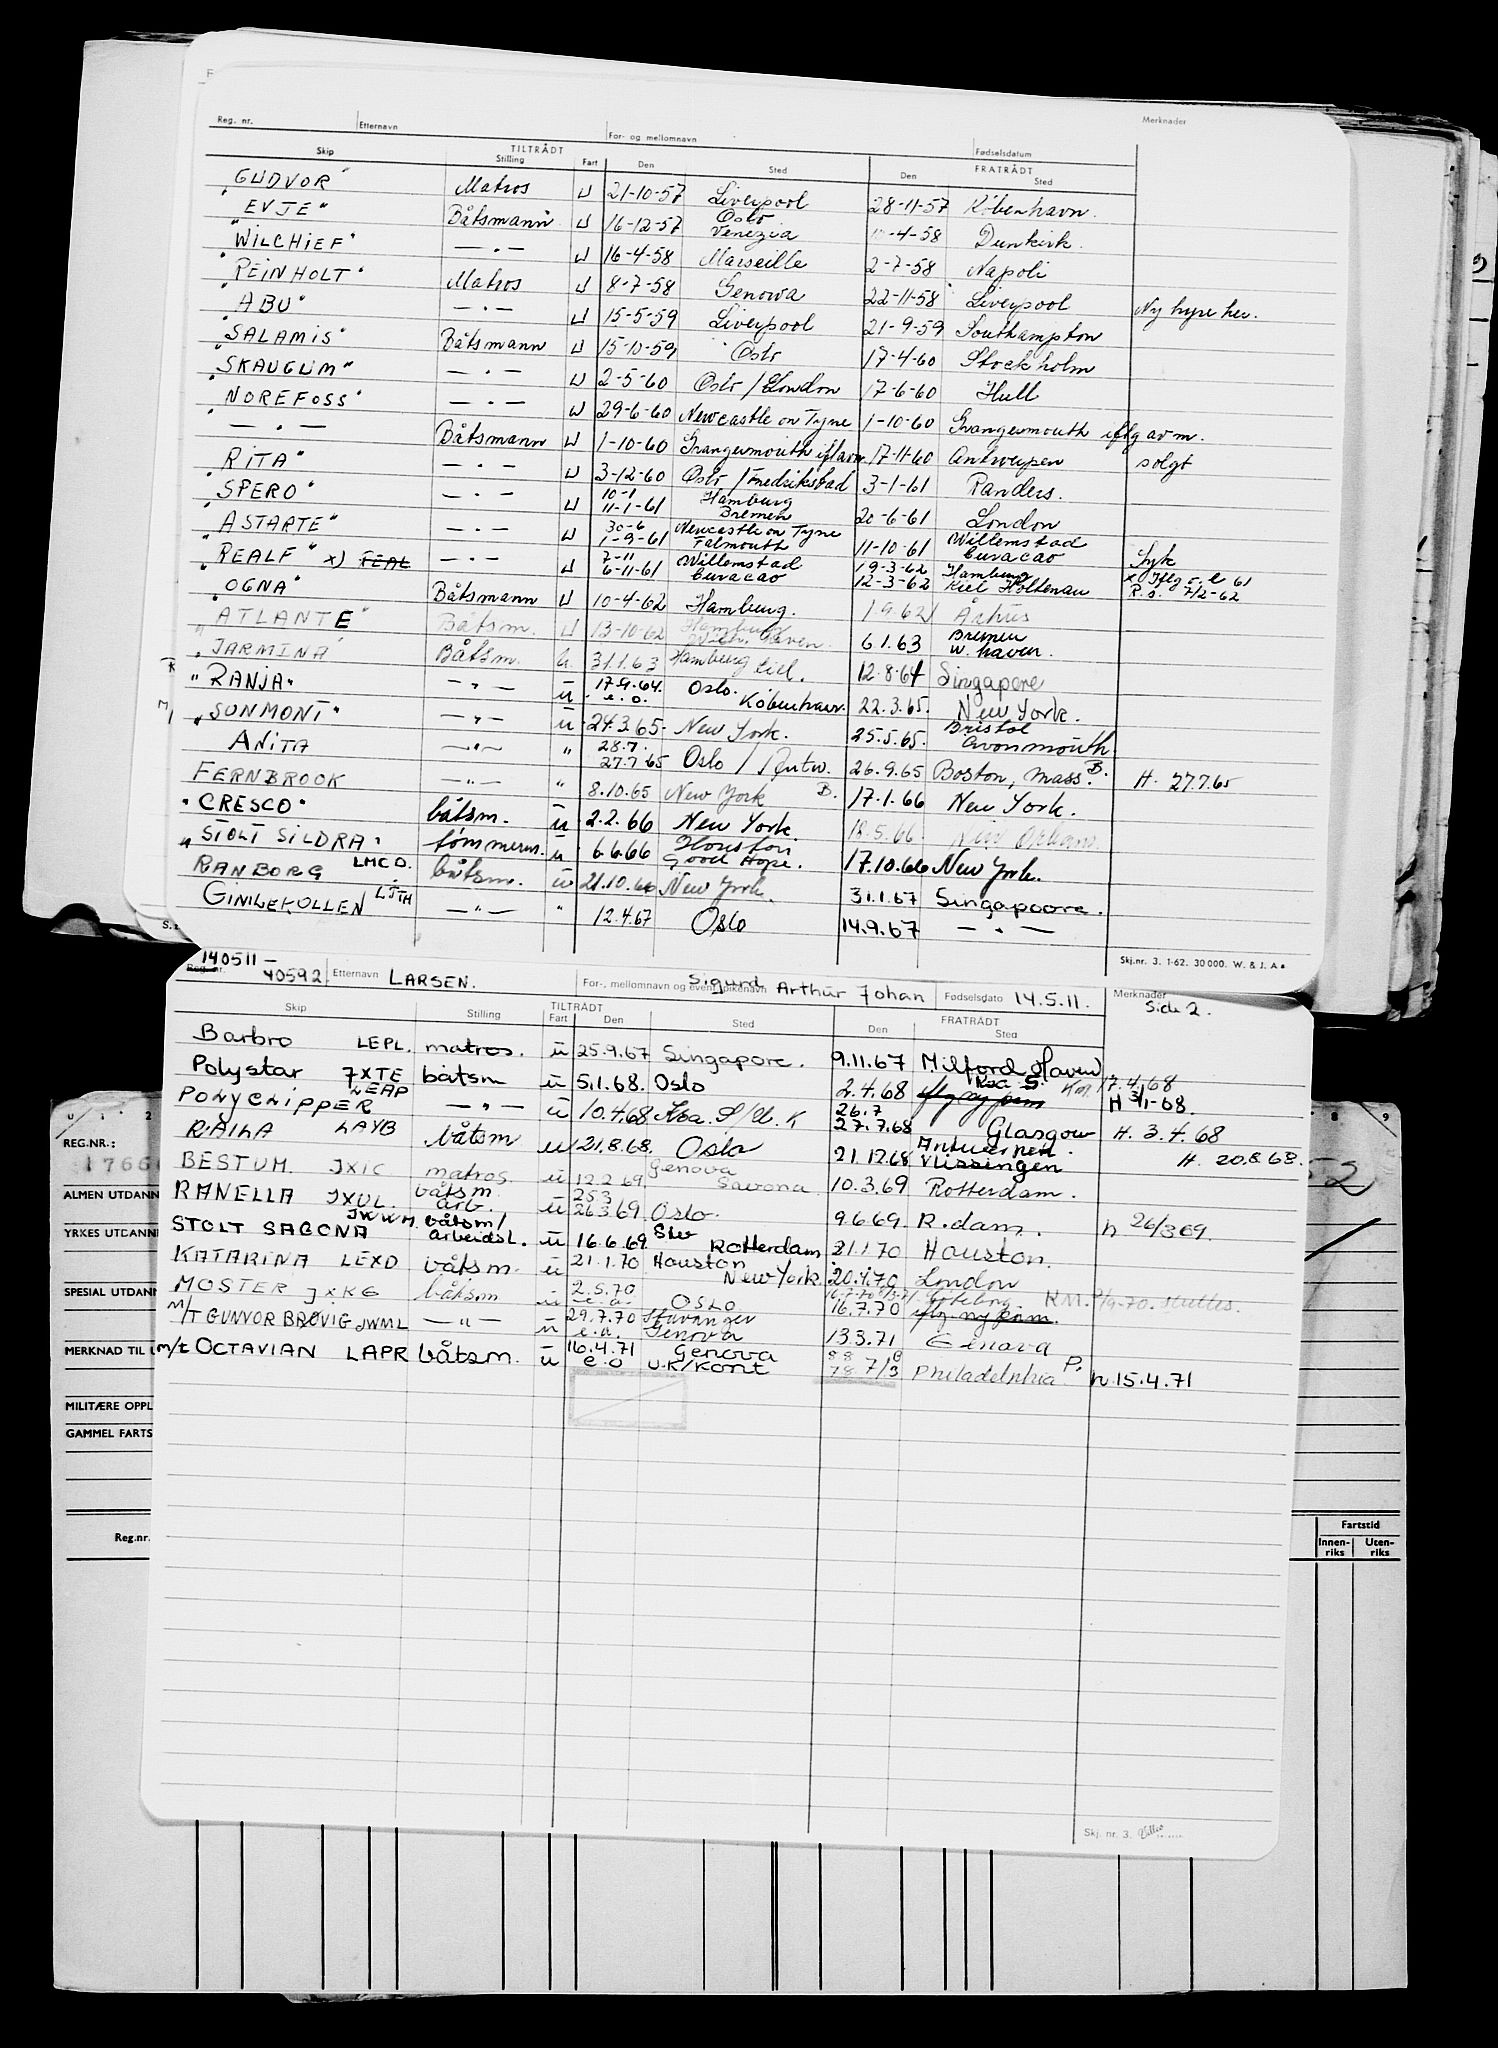 Reg. nr. Etternavn For- og mellomnavn Fødselsdatum Merknader
Skip TILTRÅDT Stilling Fart Den Sted FRATRÅDT Den Sted
"GUDVOR" Matros U 21-10-57 Liverpool 28-11-57 København.
"EVJE" Båtsmann U 16-12-57 Oslo Venezia -4-58 Dunkirk.
"WILCHIEF" — . — U 16-4-58 Marseille 2-7-58 Napoli
"REINHOLT" Matros U 8-7-58 Genova 22-11-58 Liverpool Ny hyre her.
"ABU" — . — U 15-5-59 Liverpool 21-9-59 Southampton
"SALAMIS" Båtsmann U 15-10-59 Oslo 17-4-60 Stockholm
"SKAUGUM" — . — U 2-5-60 Oslo / London 17-6-60 Hull
"NOREFOSS" — . — U 29-6-60 Newcastle on Tyne 1-10-60 Grangemouth iflg av m.
— " — Båtsmann U 1-10-60 Grangemouth iflavm 17-11-60 Antwerpen solgt
"RITA" — . — U 3-12-60 Oslo / Fredrikstad 3-1-61 Randers.
"SPERO" — . — U 10-1 11-1-61 Hamburg Bremen 20-6-61 London
"ASTARTE" — . — U 30-6 1-9-61 Newcastle on Tyne Falmouth 11-10-61 Willemstad Curacao Syk
"REALF" x) — . — U 7-11 6-11-61 Willemstad Curacao 19-3-62 12-3-62 Hamburg Kiel Holtenau x Iflg s.l 61 R.s. 7/2-62
"OGNA" Båtsmann U 10-4-62 Hamburg. 1 9 62 Århus
"ATLANTE" Båtsm. U 13-10-62 Hamburg 6 1.63 Bremen W. haven.
"JARMINA" Båtsm. U. 31.1.63 Hamburg till. 12.8.64 Singapore
"RANJA" — " — ū 17.9.64. e.o. Oslo. København. 22.3.65. New York.
"SUNMONT" — " — ū 24.3.65. New York. 25.5.65. Bristol Avonmouth
ANITA — " — " 28.7. 27.7.65 Oslo / Antw. 26.9.65 Boston, Mass. B. H. 27.7.65
FERNBROOK — " — " 8.10.65 New York B. 17.1.66 New York.
"CRESCO" båtsm. ū 2.2.66 New York. 18.5.66 New Orleans.
"STOLT SILDRA" tømmerm. ū 6.6.66 Houston Good Hope. 17.10.66 New York.
RANBORG LMCD. båtsm. ū 21.10.66 New York. 31.1.67 Singapoore.
GINILEKOLLEN LJTH — " — " 12.4.67 Oslo 14.9.67 — " —
Skj.nr. 3. 1-62. 30 000. W. & J. A.
140511 — 40592 Etternavn LARSEN. For-, mellomnavn og event. pikenavn Sigurd Arthur Johan Fødselsdato 14.5.11. Merknader Side 2.
Skip Stilling TILTRÅDT Fart Den Sted FRATRÅDT Den Sted
Barbro LEPL. matros. ū 25.9.67 Singapore. 9.11.67 Milford Haven
Polystar JXTE båtsm ū 5.1.68. Oslo 2.4.68 Km 17.4.68 H 3/1-68.
POLYCLIPPER LEAP — " — ū 10.4.68 26.7 27.7.68 Glasgow H. 3.4.68
RAILA LAYB båtsm ū 21.8.68. Oslo 21.12.68 Antwerpen. Vlissingen H. 20.8.68.
BESTUM. JXIC matros. ū 12.2.69. Genova Savona 10.3.69 Rotterdam.
RANELLA JXUL båtsm. arb. ū 25.3 26.3.69 Oslo. 9.6.69. R.dam. h 26/3 69.
STOLT SAGONA JWWM. båtsm/ arbeidsl. ū 16.6.69. Rotterdam 21.1.70 Houston.
KATARINA LEXD båtsm. ū 21.1.70 Houston New York. 20.4.70 London
MOSTER JXKG båtsm ū 2.5.70 e.o. OSLO 16.7.70 Göteborg iflg ny fam. KM. 2/9-70.
M/T GUNVOR BRØVIG JWML — " — ū 29.7.70 e.o. Stavanger Genova 13.3.71 Genova
m/t OCTAVIAN LAPR båtsm. ū 16.4.71 e.o Genova U.K/Kont Philadelphia P. h.15.4.71
REG.NR.:
ALMEN UTDANN
YRKES UTDANN
SPESIAL UTDAN
MERKNAD TIL
MILITÆRE OPPL
GAMMEL FARTS
Reg.nr. Fartstid
Innen-riks Uten-riks
Skj. nr. 3.